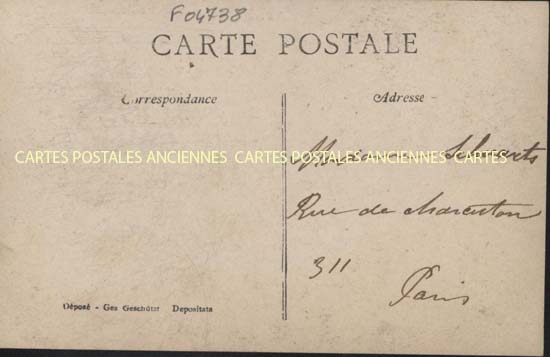 F04738
CARTE POSTALE
Correspondance
Adresse
CARTES POSTALES ANCIENNES CARTES POSTALES ANCIENNES
Rue de charenton
311
Paris
Déposé - Ges Geschützt Depositata